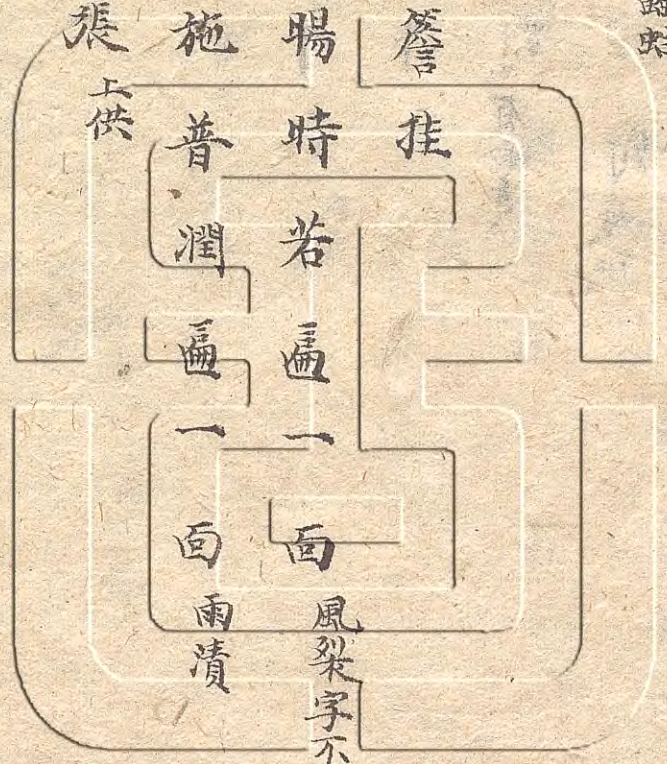 簷挂
暘時若匾一面 風裂字不
施普潤匾一面 雨漬
張 上供